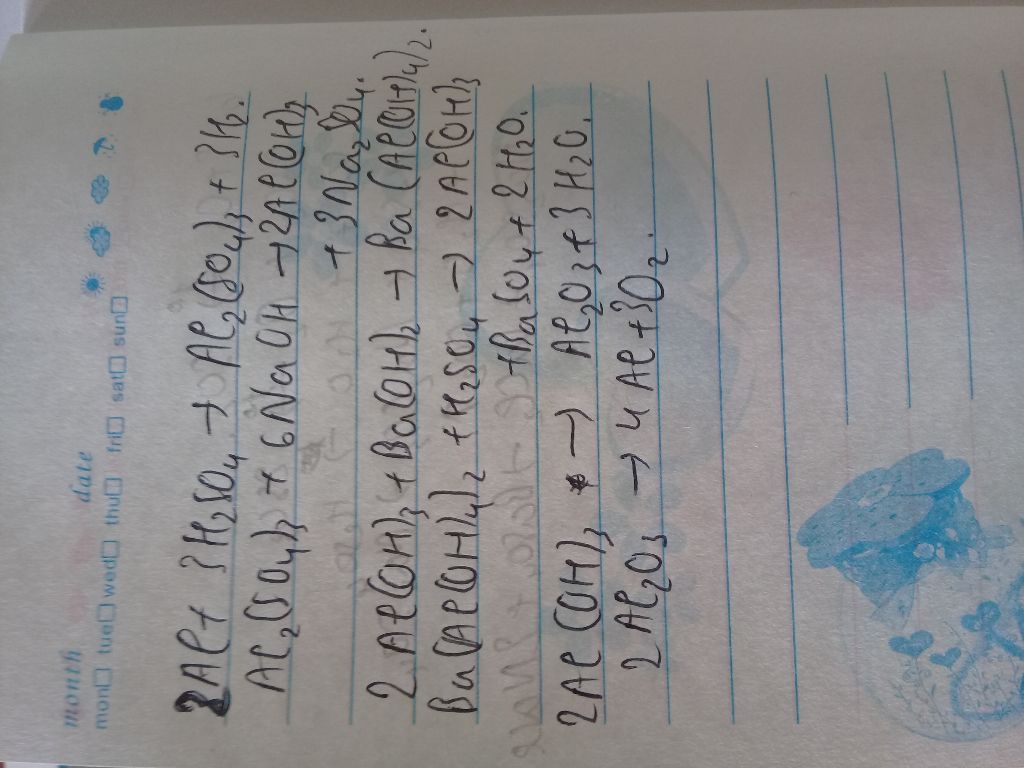 month date
mon□ tue□ wed□ thu□ fri□ sat□ sun□
2Al + 3H₂SO₄ → Al₂(SO₄)₃ + 3H₂.
Al₂(SO₄)₃ + 6NaOH → 2Al(OH)₃
+ 3Na₂SO₄.
2Al(OH)₃ + Ba(OH)₂ → Ba(Al(OH)₄)₂.
Ba(Al(OH)₄)₂ + H₂SO₄ → 2Al(OH)₃
+ BaSO₄ + 2H₂O.
2Al(OH)₃ → Al₂O₃ + 3H₂O.
2Al₂O₃ → 4Al + 3O₂.